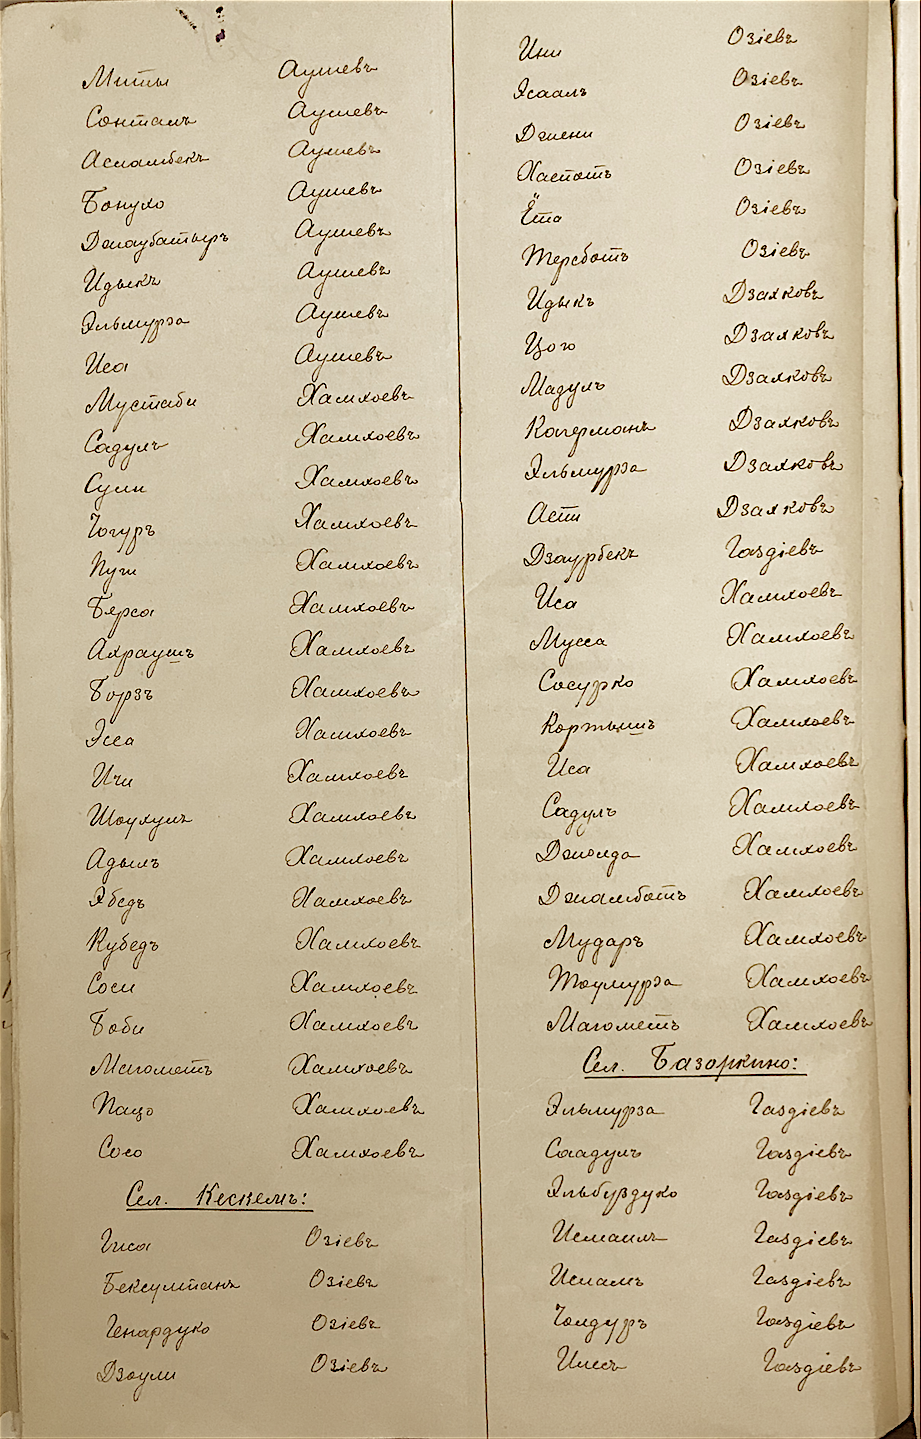 Миты Аушевъ
Сонталъ Аушевъ
Асламбекъ Аушевъ
Бонухо Аушевъ
Джаубатыръ Аушевъ
Идыкъ Аушевъ
Эльмурза Аушевъ
Иса Аушевъ
Мустаби Хамхоевъ
Садулъ Хамхоевъ
Сули Хамхоевъ
Чогуръ Хамхоевъ
Пуги Хамхоевъ
Бэрса Хамхоевъ
Ахраушъ Хамхоевъ
Борзъ Хамхоевъ
Эсса Хамхоевъ
Ичи Хамхоевъ
Шаухулъ Хамхоевъ
Адылъ Хамхоевъ
Эбедъ Хамхоевъ
Кубедъ Хамхоевъ
Соси Хамхоевъ
Боби Хамхоевъ
Магометъ Хамхоевъ
Пацо Хамхоевъ
Сосо Хамхоевъ
Сел. Кескемъ:
Гиса Озіевъ
Бексултанъ Озіевъ
Генардуко Озіевъ
Дзоули Озіевъ
Ини Озіевъ
Эсаалъ Озіевъ
Джени Озіевъ
Хаспотъ Озіевъ
Ёта Озіевъ
Терсботъ Озіевъ
Идыкъ Дзалховъ
Цого Дзалховъ
Мадулъ Дзалховъ
Кагерманъ Дзалховъ
Эльмурза Дзалховъ
Асти Дзалховъ
Дзаурбекъ Газдіевъ
Иса Хамхоевъ
Мусса Хамхоевъ
Сосурко Хамхоевъ
Кортышъ Хамхоевъ
Иса Хамхоевъ
Садулъ Хамхоевъ
Джолда Хамхоевъ
Джамботъ Хамхоевъ
Мударъ Хамхоевъ
Таумурза Хамхоевъ
Магометъ Хамхоевъ
Сел. Базоркино:
Эльмурза Газдіевъ
Саадулъ Газдіевъ
Эльбуздуко Газдіевъ
Исмаилъ Газдіевъ
Исламъ Газдіевъ
Чолдуръ Газдіевъ
Илесъ Газдіевъ